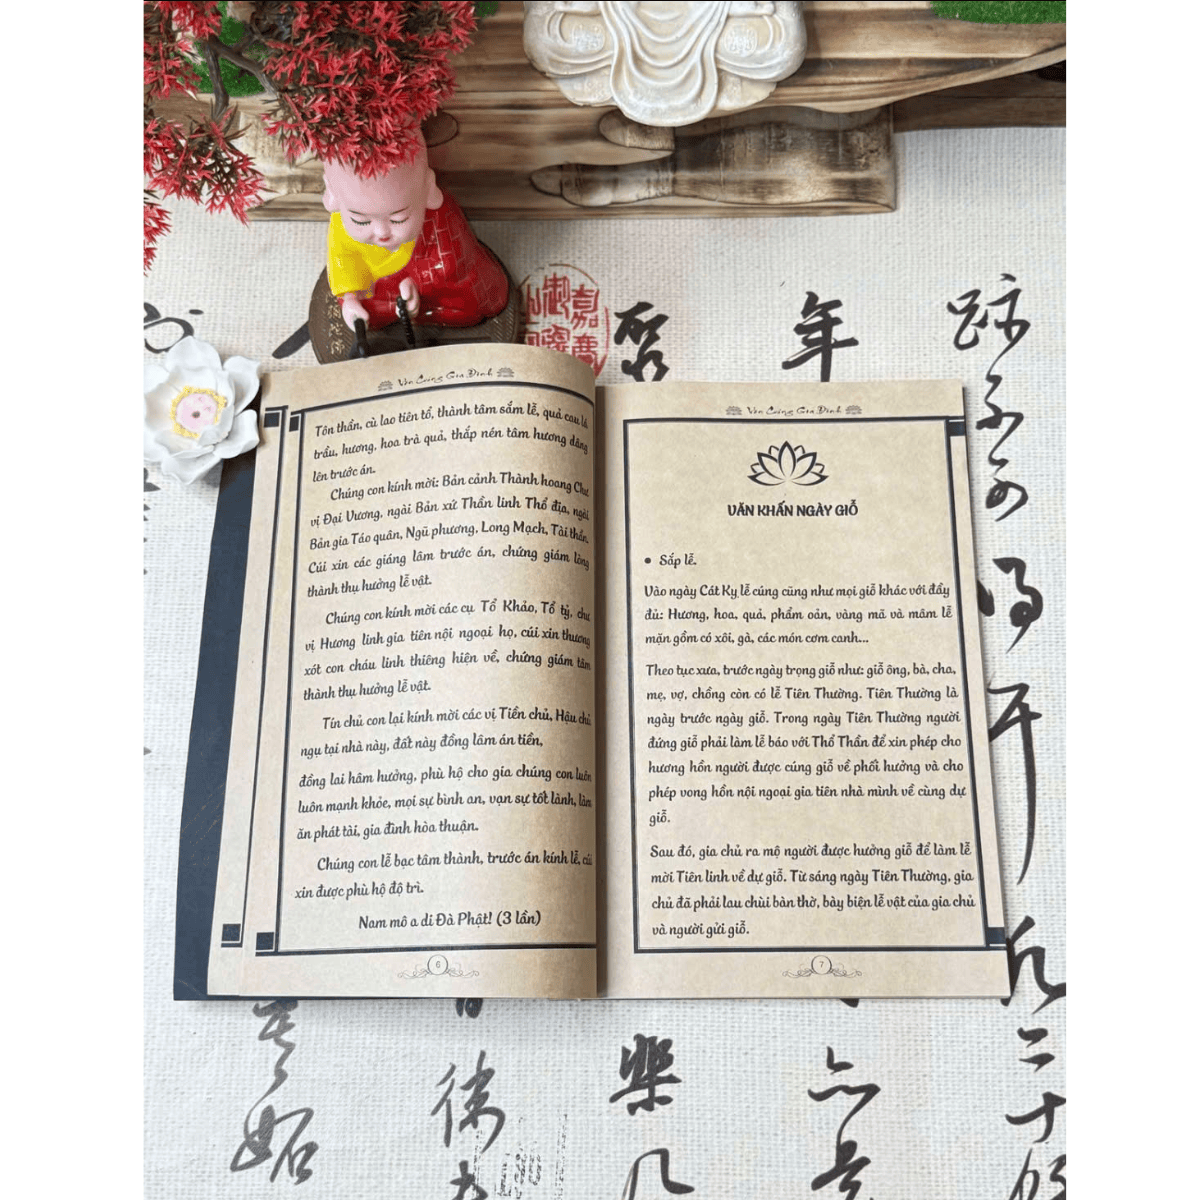 Văn Cúng Gia Đình
Tôn thần, cù lao tiên tổ, thành tâm sắm lễ, quả cau lá
trầu, hương, hoa trà quả, thắp nén tâm hương dâng
lên trước án.
Chúng con kính mời: Bản cảnh Thành hoang Chư
vị Đại Vương, ngài Bản xứ Thần linh Thổ địa, ngài
Bản gia Táo quân, Ngũ phương, Long Mạch, Tài thần.
Cúi xin các giáng lâm trước án, chứng giám lòng
thành thụ hưởng lễ vật.
Chúng con kính mời các cụ Tổ Khảo, Tổ tỷ, chư
vị Hương linh gia tiên nội ngoại họ, cúi xin thương
xót con cháu linh thiêng hiện về, chứng giám tâm
thành thụ hưởng lễ vật.
Tín chủ con lại kính mời các vị Tiền chủ, Hậu chủ
ngụ tại nhà này, đất này đồng lâm án tiền,
đồng lai hâm hưởng, phù hộ cho gia chúng con luôn
luôn mạnh khỏe, mọi sự bình an, vạn sự tốt lành, làm
ăn phát tài, gia đình hòa thuận.
Chúng con lễ bạc tâm thành, trước án kính lễ, cúi
xin được phù hộ độ trì.
Nam mô a di Đà Phật! (3 lần)
6
Văn Cúng Gia Đình
VĂN KHẤN NGÀY GIỖ
• Sắp lễ.
Vào ngày Cát Kỵ lễ cúng cũng như mọi giỗ khác với đầy
đủ: Hương, hoa, quả, phẩm oản, vàng mã và mâm lễ
mặn gồm có xôi, gà, các món cơm canh...
Theo tục xưa, trước ngày trọng giỗ như: giỗ ông, bà, cha,
mẹ, vợ, chồng còn có lễ Tiên Thường. Tiên Thường là
ngày trước ngày giỗ. Trong ngày Tiên Thường người
đứng giỗ phải làm lễ báo với Thổ Thần để xin phép cho
hương hồn người được cúng giỗ về phối hưởng và cho
phép vong hồn nội ngoại gia tiên nhà mình về cùng dự
giỗ.
Sau đó, gia chủ ra mộ người được hưởng giỗ để làm lễ
mời Tiên linh về dự giỗ. Từ sáng ngày Tiên Thường, gia
chủ đã phải lau chùi bàn thờ, bày biện lễ vật của gia chủ
và người gửi giỗ.
7
年